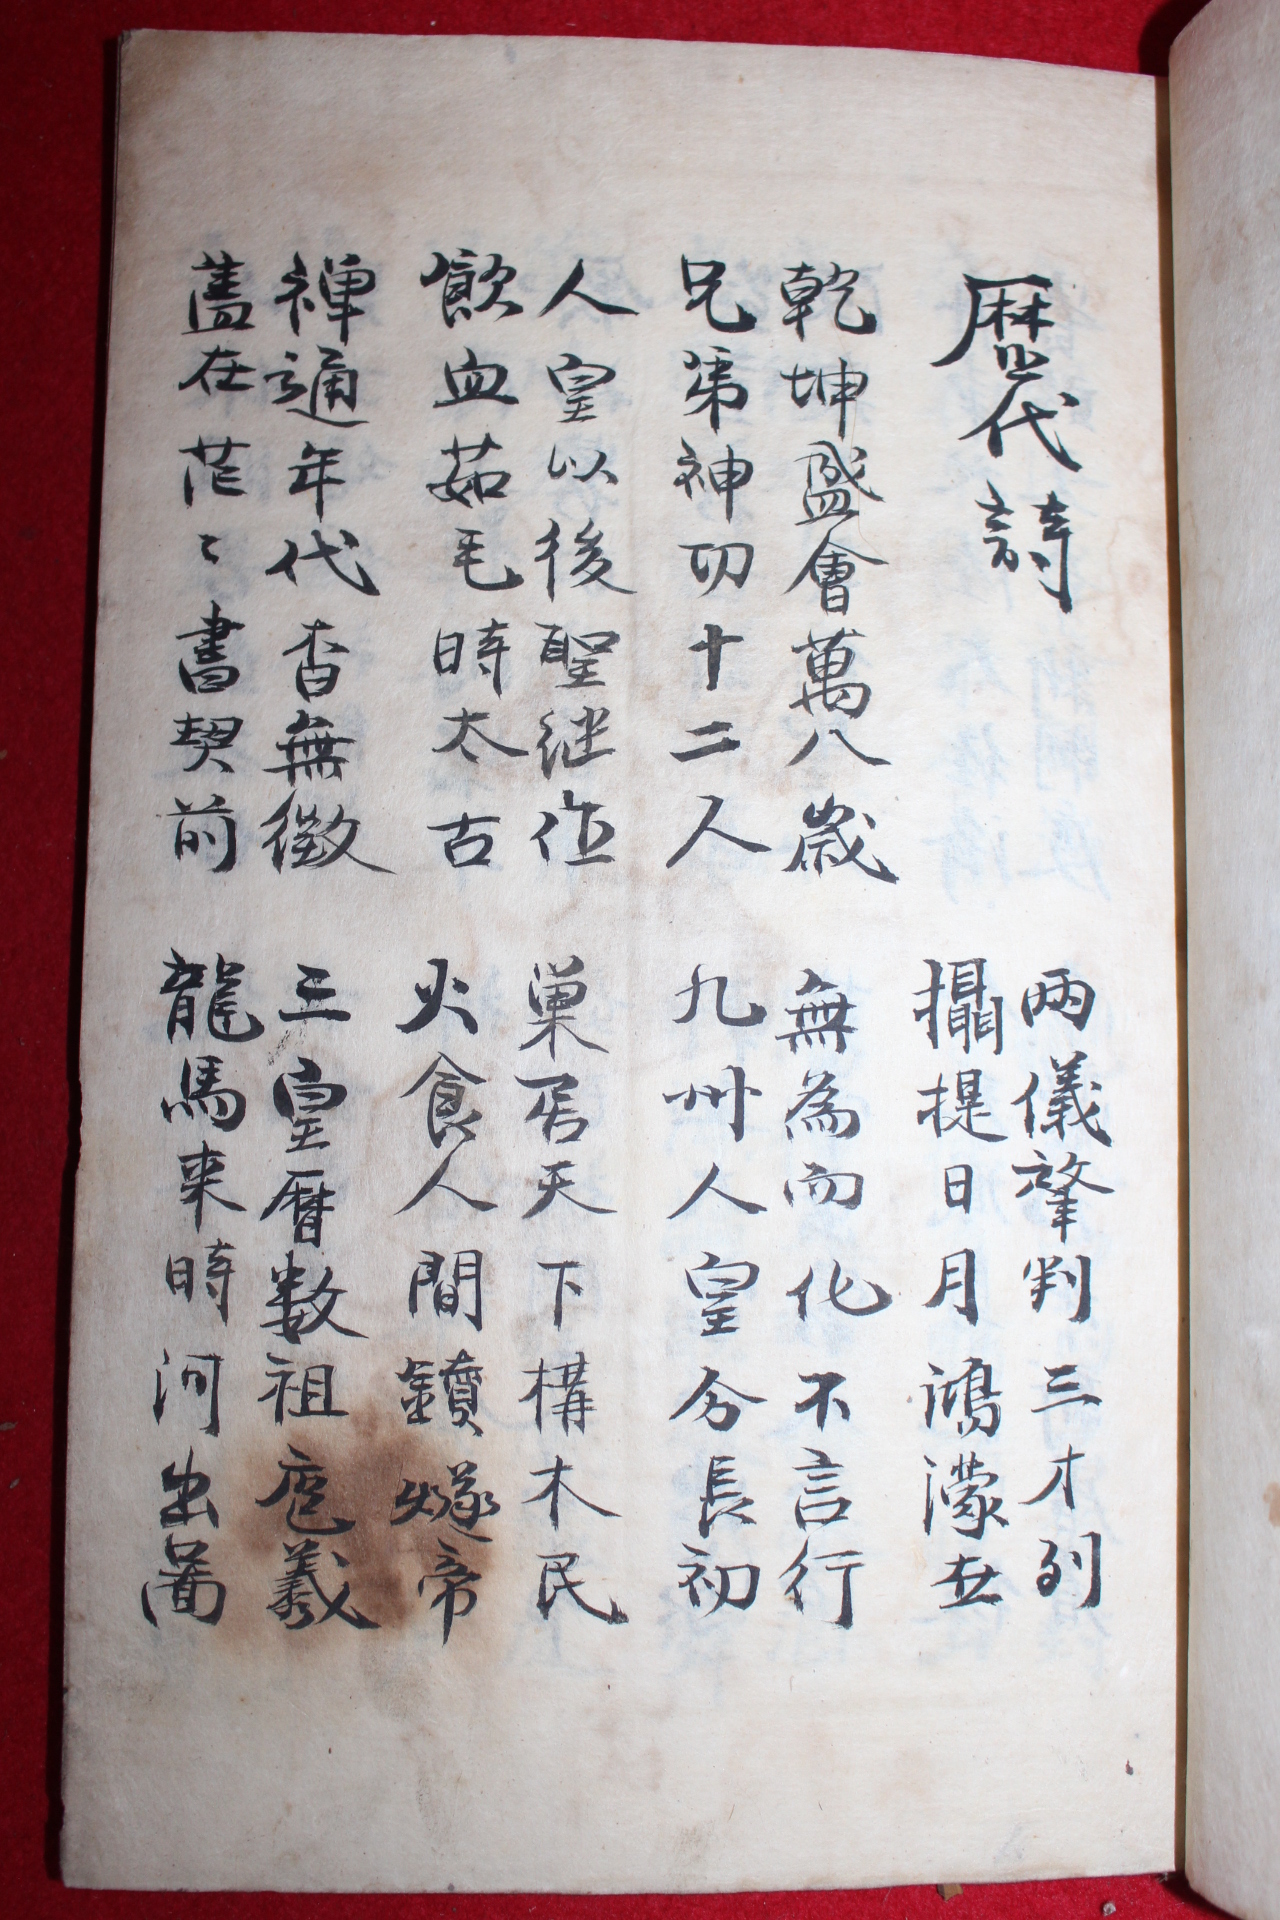 歴代詩
兩儀肇判三才列
攝提日月鴻濛在
乾坤盛會萬八歲
兄第神功十二人
無為而化不言行
九州人皇分長初
人皇以後聖継作
飮血茹毛時太古
巢居天下構木民
火食人間鑽燧帝
禪通年代杳無徵
蓋在茫〻書契前
三皇曆数祖庖羲
龍馬来時河出圖